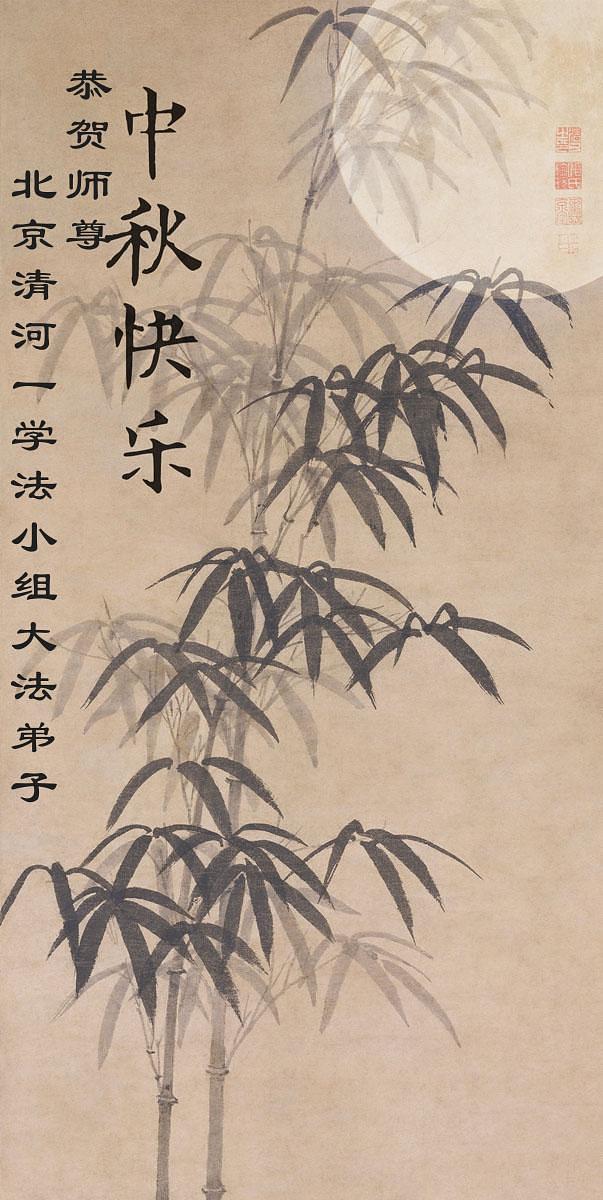 恭贺师尊
中秋快乐
北京清河一学法小组大法弟子